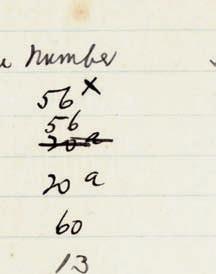 Number
56 x
56
20 a
60
13